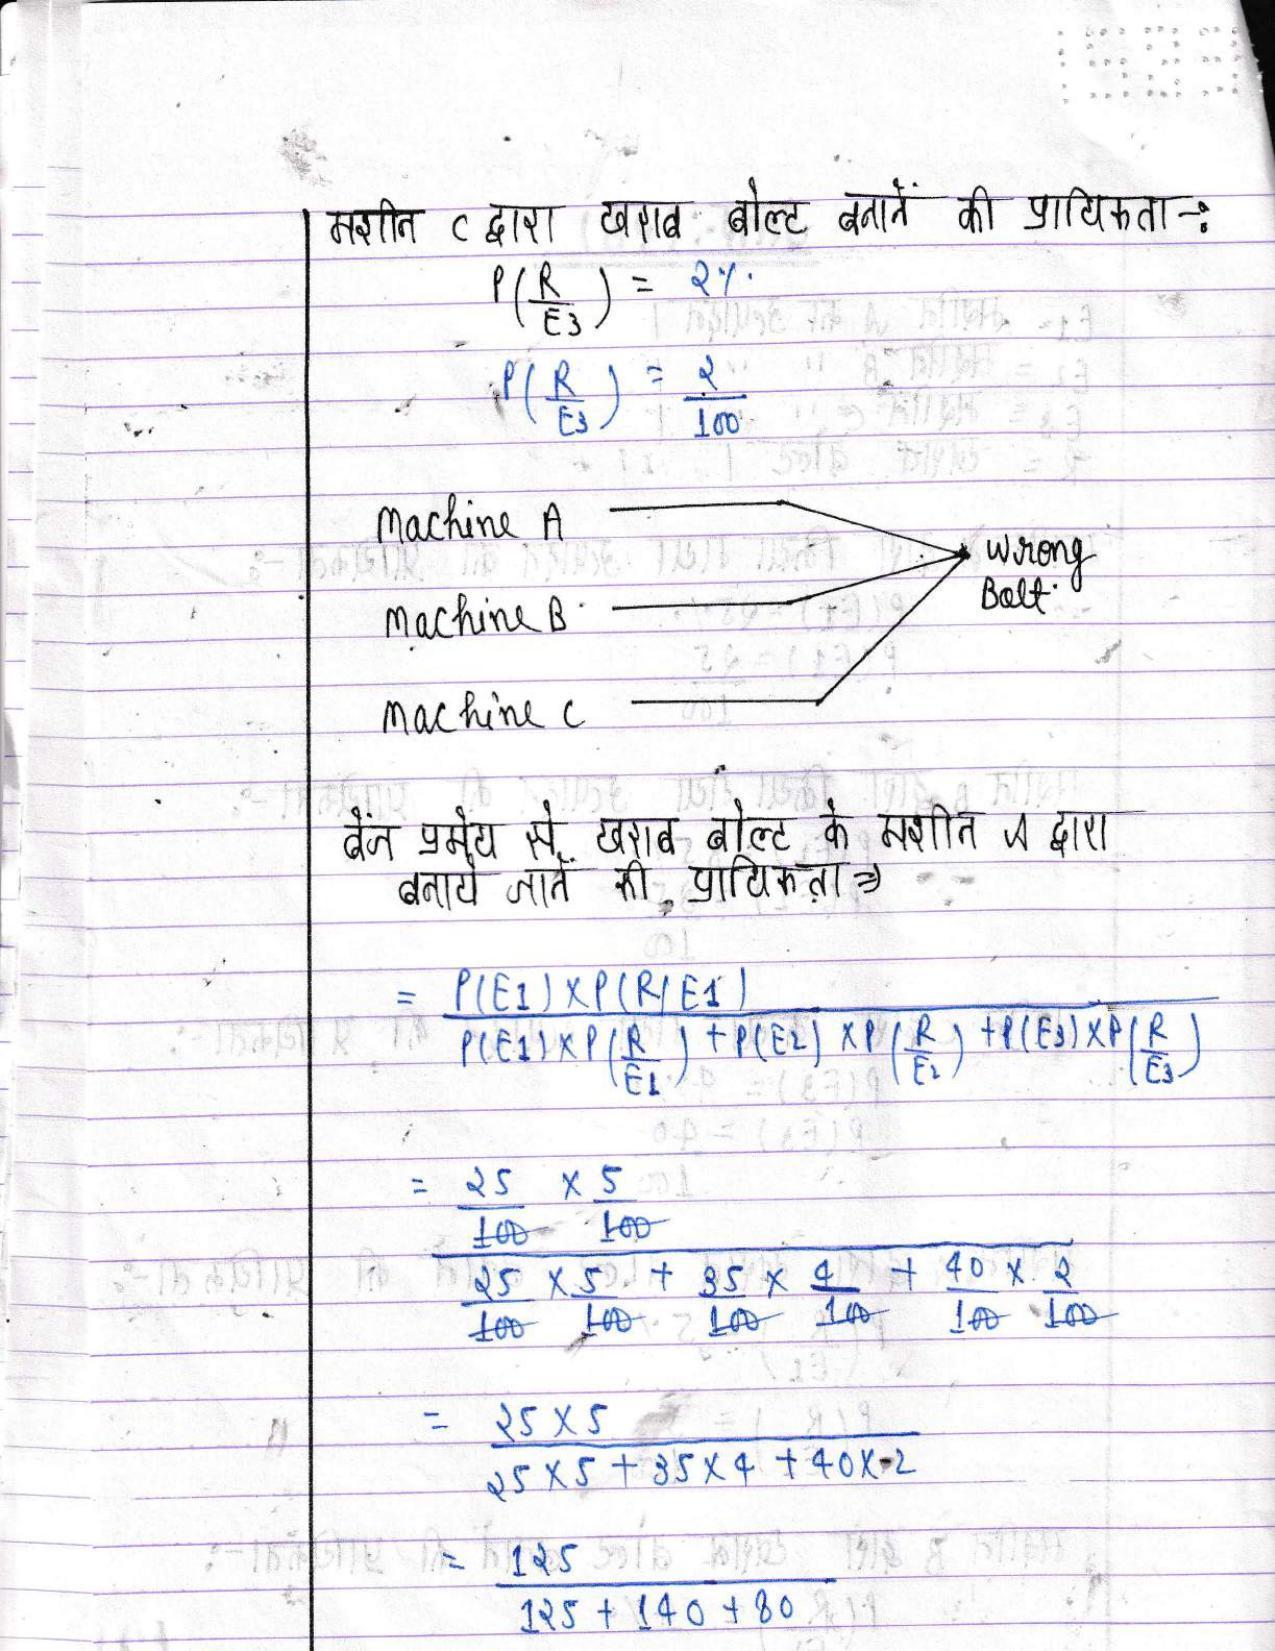 मशीन C द्वारा खराब बोल्ट बनानें की प्रायिकता →:
P(R/E3) = 2%.
P(R/E3) = 2/100
Machine A
Wrong
Bolt.
Machine B
Machine C
बेंज प्रमेय से, खराब बोल्ट के मशीन A द्वारा
बनाये जानें की प्रायिकता ⇒
= P(E1) × P(R/E1)
P(E1) × P(R/E1) + P(E2) × P(R/E2) + P(E3) × P(R/E3)
= 25/100 × 5/100
25/100 × 5/100 + 35/100 × 4/100 + 40/100 × 2/100
= 25 × 5
25 × 5 + 35 × 4 + 40 × 2
= 125
125 + 140 + 80